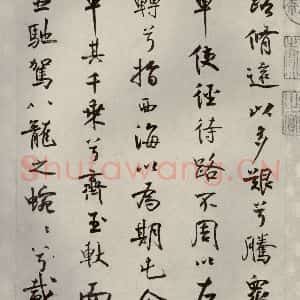 路脩遠以多艱兮騰衆
車使徑待路不周以左
轉兮指西海以為期屯余
車其千乘兮齊玉軑而
並馳駕八龍之蜿〻兮載
Shufawang.CN